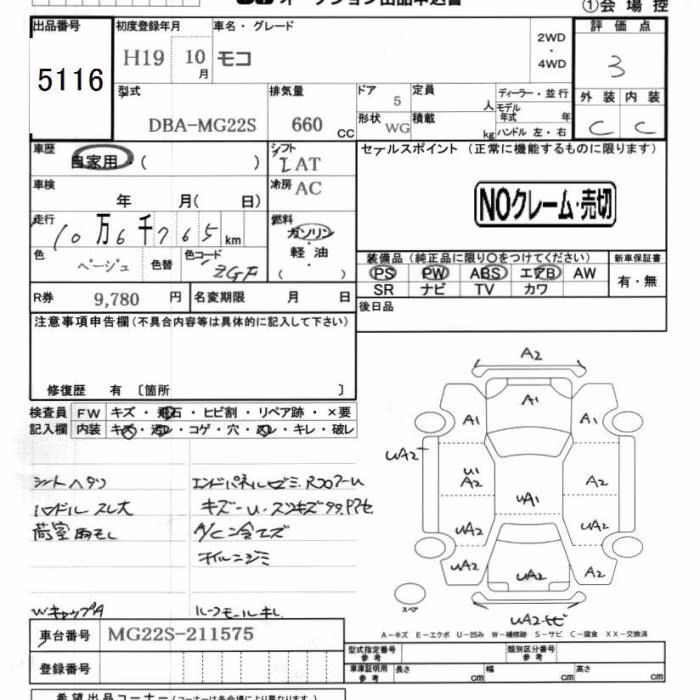 オークション出品申込書
①会場控
出品番号 初度登録年月 車名・グレード 評価点
5116 H19 10月 モコ 2WD・4WD 3
型式 排気量 ドア 定員 ディーラー・並行 外装 内装
DBA-MG22S 660 CC 5 人 モデル年式 年 C C
形状 WG 積載 kg ハンドル 左・右
車歴 自家用・( ) シフト IAT セールスポイント (正常に機能するものに限ります)
車検 年 月( 日) 冷房 AC
NOクレーム・売切
走行 10万6千765km 燃料 ガソリン
軽油
( )
色 ベージュ 色替 色コード ZGF
装備品 (純正品に限り○をつけてください) 新車保証書
PS PW ABS エアB AW 有・無
SR ナビ TV カワ
R券 9,780円 名変期限 月 日
後日品
注意事項申告欄(不具合内容等は具体的に記入して下さい)
修復歴 有 〔箇所 〕
検査員 FW キズ・飛石・ヒビ割・リペア跡・×要
記入欄 内装 キズ・汚レ・コゲ・穴・スレ・キレ・破レ
シートヘタリ
ハンドルスレ大
荷室雨モレ
Wキャップ
A/C
オイルニジミ
ルーフモールキレ
A2
A1
A1 A1
UA2
U1
A2 UA1 A2
UA2 UA2
UA2 UA2 A2
スペア
UA2・サビ
A-キズ E-エクボ U-凹み W-補修跡 S-サビ C-腐食 XX-交換済
車台番号 MG22S-211575
型式指定番号 参考 類別区分番号 参考
登録番号
車庫証明用 参考 長さ cm 幅 cm 高さ cm
希望出品コーナー(コーナーは各会場により異なります。)